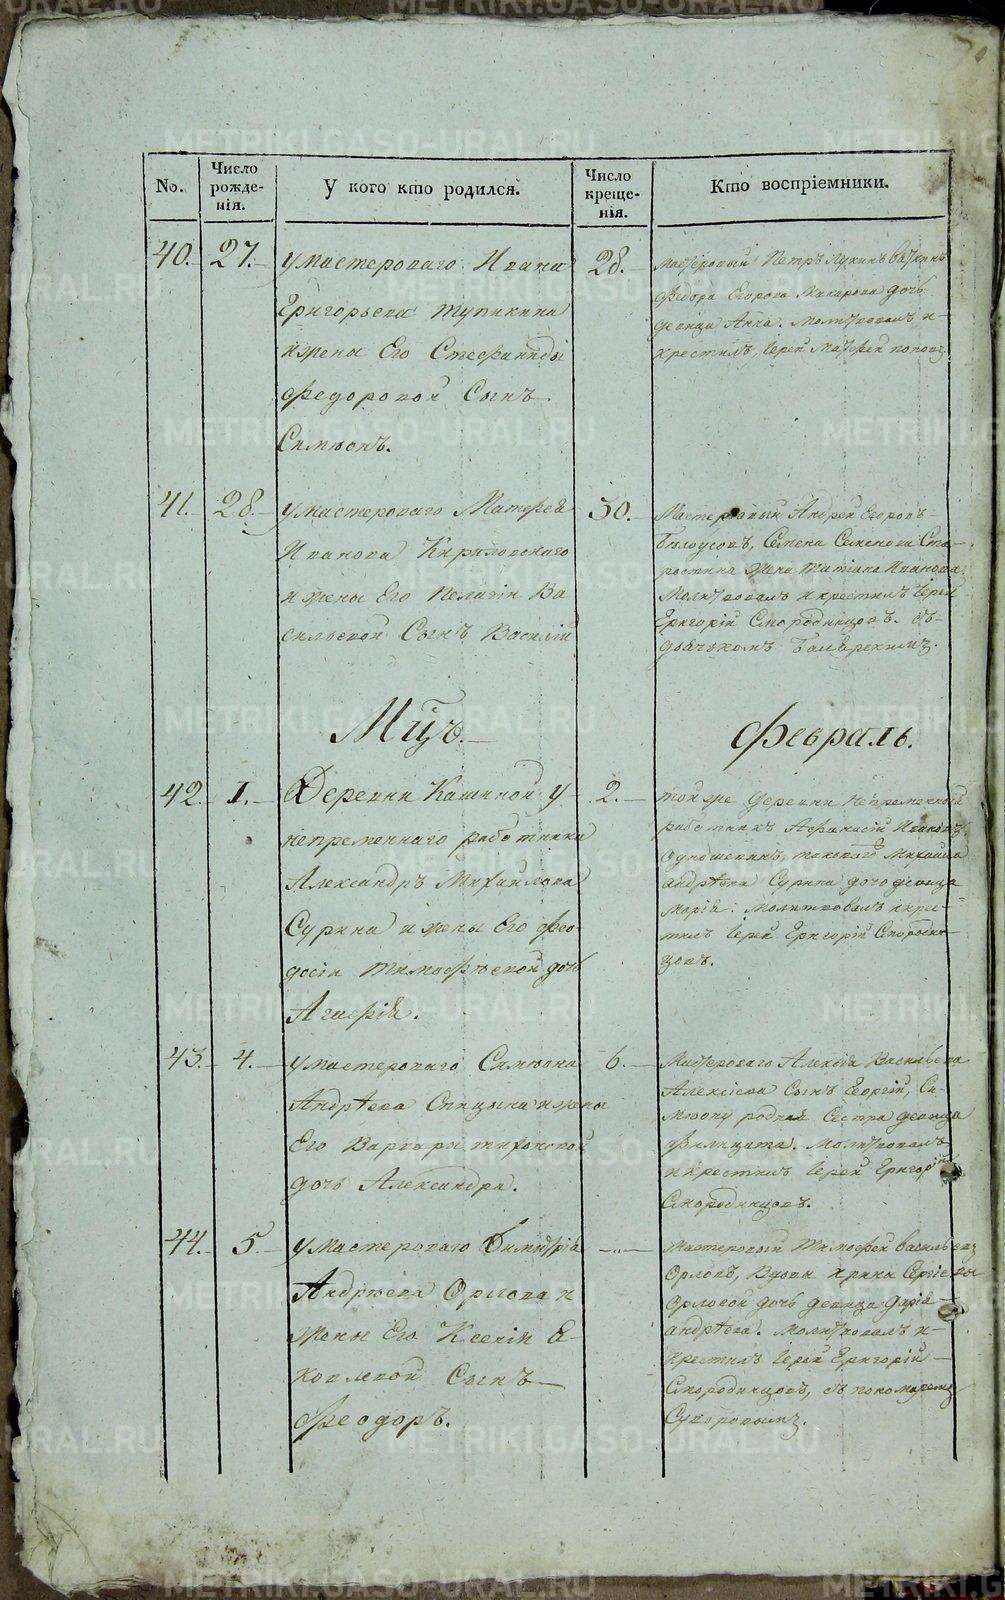 No.
Число рожденія.
У кого кто родился.
Число крещенія.
Кто воспріемники.
40. 27. у мастероваго Ивана
Григорьева Тупикина
и жены Его Стефаниды
Федоровой Сынъ
Симеонъ.
28. Мастеровый Петръ Лукинъ
Федора Егорова Макарова дочь
девица Анна. Молитвовалъ и
крестилъ Іерей Матфей Поповъ
41. 28. у мастероваго Матфея
Иванова Кириловскаго
и жены Его Пелагіи Ва
сильевой Сынъ Василій
30. Мастеровый Андрей Егоровъ
Бѣлоусовъ, Семена Семенова Ста
ростина жена Татіана Иванова.
Молитвовалъ и крестилъ Іерей
Григорій Смородинцовъ. съ
дьячкомъ
Мцъ
Февраль.
42. 1. Деревни Кашиной у
непременнаго работника
Александръ Михаилова
Сурина и жены Его Фео
досіи Тимофѣевой дочь
Агафія.
2. той же деревни непременный
работникъ Афанасій Ивановъ
таковаго Михаила
андрѣева Сурина дочь девица
Марія. Молитвовалъ и крес
тилъ Іерей Григорій Смородин
цовъ.
43. 4. у мастероваго Симеона
Андрѣева Спицына и жены
Его Варвары Тихоновой
дочь Александра.
6. Мастероваго Алексѣя Васильева
Алексѣева Сынъ Георгій, Си
меону родная Сестра девица
Филицата. Молитвовалъ
и крестилъ Іерей Григорій
Смородинцовъ.
44. 5. у мастероваго Димитрія
Андрѣева Орлова и
жены Его Ксеніи Я
ковлевой Сынъ
Феодоръ.
—„— Мастеровый Тимофей Васильевъ
Орловъ, Вдовы Ирины Сергіевы
Орловой дочь девица Дарія
андрѣева. Молитвовалъ и
крестилъ Іерей Григорій
Смородинцовъ, съ пономаремъ
Суворовымъ.
METRIKI.GASO-URAL.RU